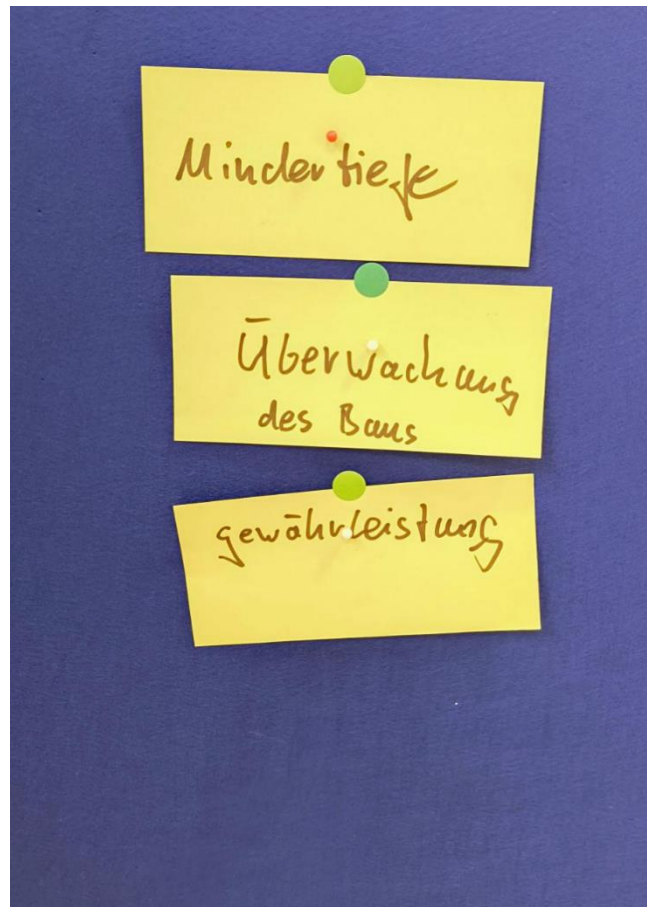 Mindertiefe
Überwachung
des Baus
gewährleistung